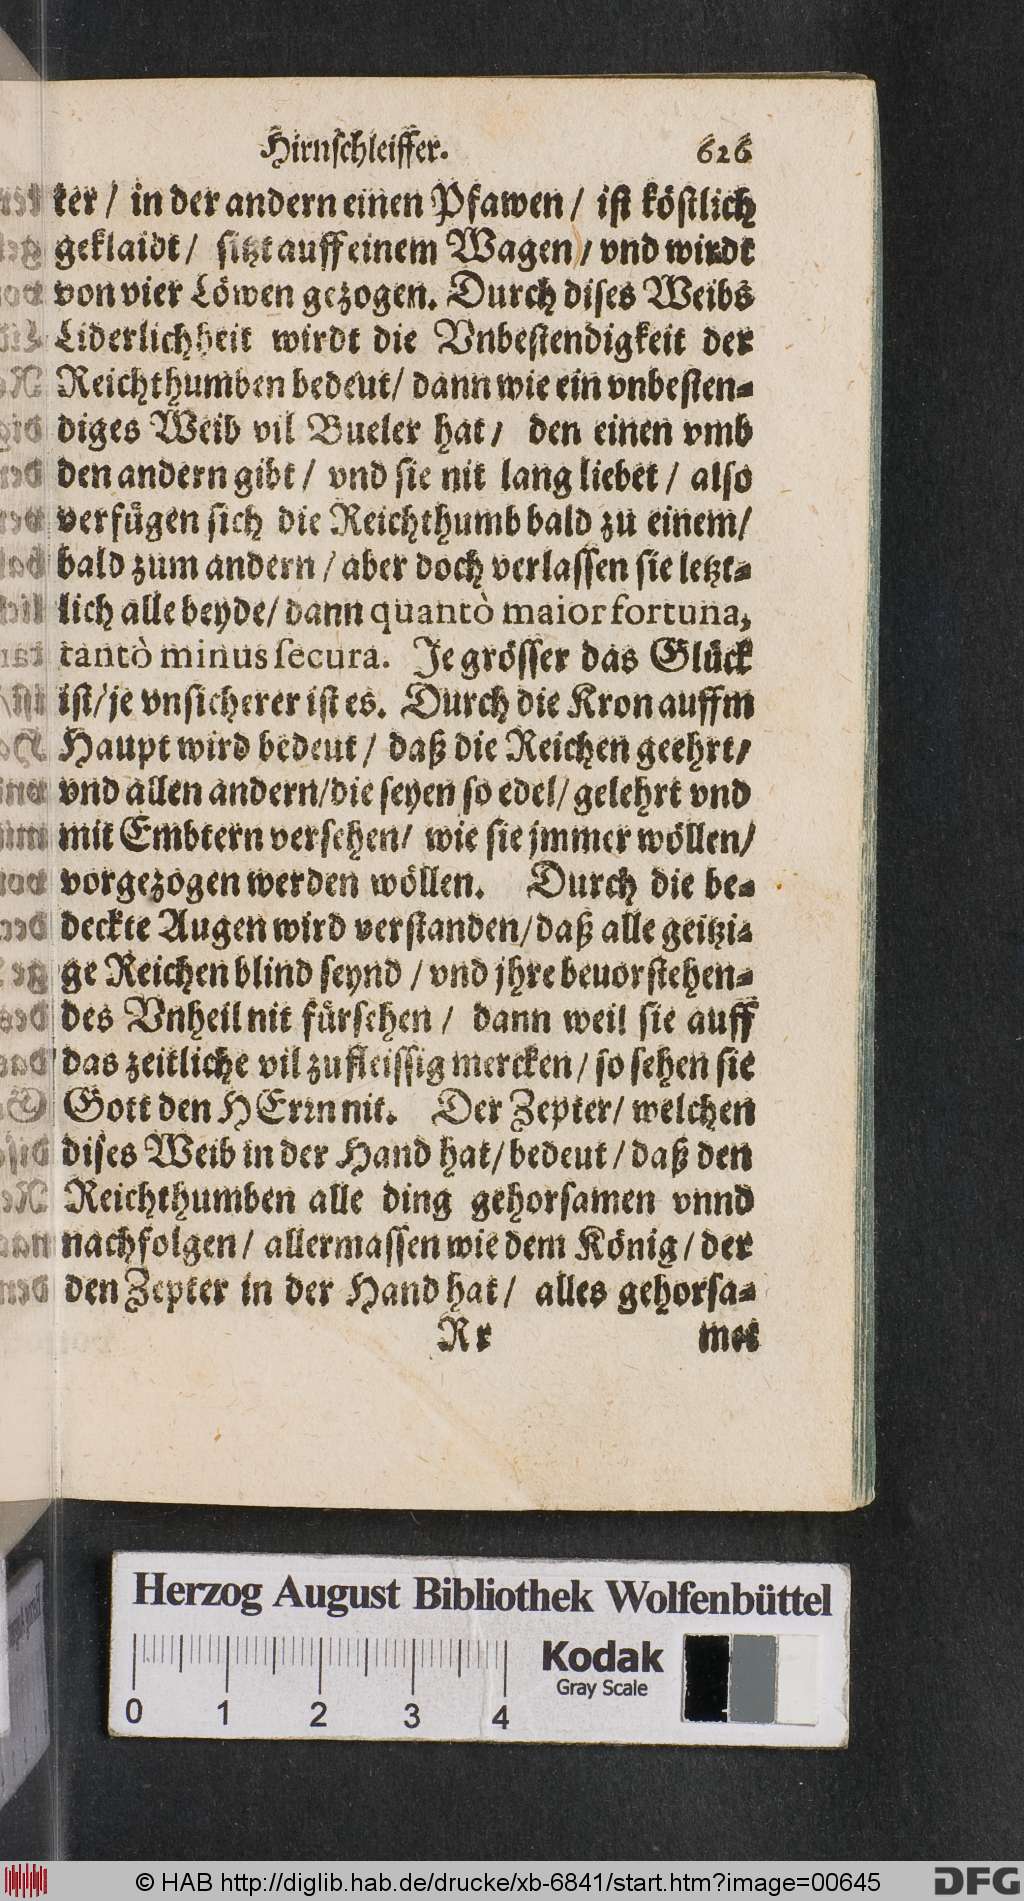 Hirnschleiffer. 626
ter / in der andern einen Pfawen / ist köstlich
geklaidt / sitzt auff einem Wagen / vnd wirdt
von vier Löwen gezogen. Durch dises Weibs
Liderlichheit wirdt die Vnbestendigkeit der
Reichthumben bedeut / dann wie ein vnbesten-
diges Weib vil Bueler hat / den einen vmb
den andern gibt / vnd sie nit lang liebet / also
verfügen sich die Reichthumb bald zu einem /
bald zum andern / aber doch verlassen sie letzt-
lich alle beyde / dann quantò maior fortuna,
tantò minus secura. Je grösser das Glück
ist / je vnsicherer ist es. Durch die Kron auffm
Haupt wird bedeut / daß die Reichen geehrt /
vnd allen andern / die seyen so edel / gelehrt vnd
mit Embtern versehen / wie sie jmmer wöllen /
vorgezogen werden wöllen. Durch die be-
deckte Augen wird verstanden / daß alle geitzi-
ge Reichen blind seynd / vnd jhre beuorstehen-
des Vnheil nit fürsehen / dann weil sie auff
das zeitliche vil zu fleissig mercken / so sehen sie
Gott den HErrn nit. Der Zepter / welchen
dises Weib in der Hand hat / bedeut / daß den
Reichthumben alle ding gehorsamen vnnd
nachfolgen / allermassen wie dem König / der
den Zepter in der Hand hat / alles gehorsa-
Rr met
Herzog August Bibliothek Wolfenbüttel
0 1 2 3 4
Kodak
Gray Scale
© HAB http://diglib.hab.de/drucke/xb-6841/start.htm?image=00645
DFG